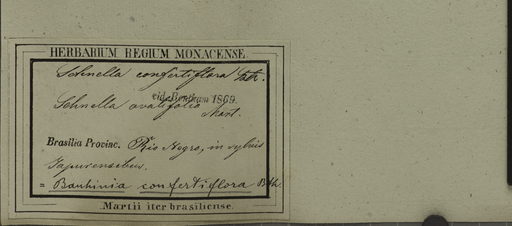 HERBARIUM REGIUM MONACENSE.
Schnella confertiflora
vide Bentham 1869.
Schnella ovalifolia Mart.
Brasilia Provinc. Rio Negro, in sylvis
Japurensibus.
= Bauhinia confertiflora Bth.
Martii iter brasiliense.